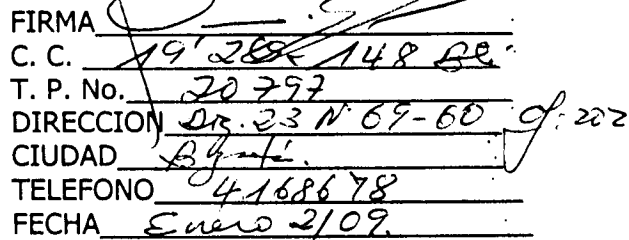 FIRMA
C. C. 19'289-148 Bt:
T. P. No. 20797
DIRECCION Dg. 23 Nº 69-60 Of: 202
CIUDAD Bogotá.
TELEFONO 4168678
FECHA Enero 2/09.